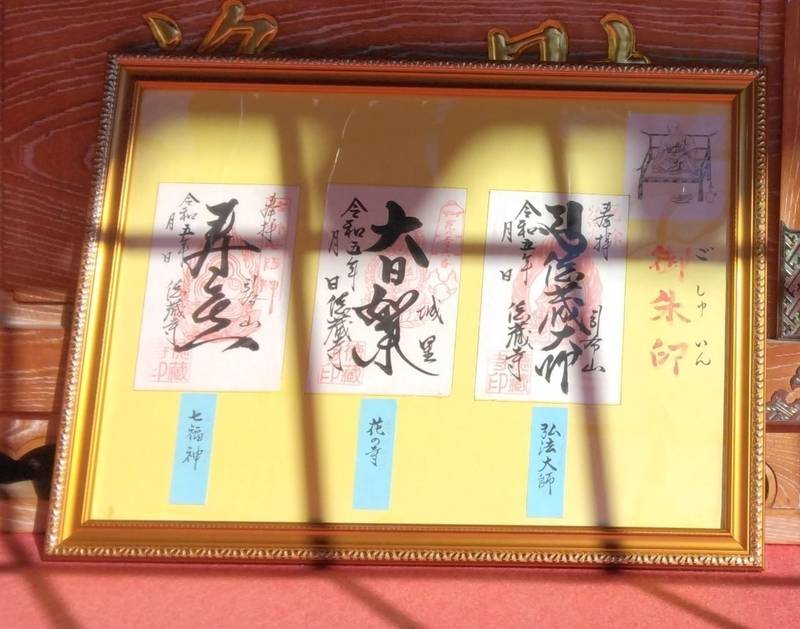 御朱印
ごしゅいん
奉拝
引布山
徳蔵大師
令和五年
月 日
徳蔵寺
弘法大師
城里
大日
令和五年
月 日
徳蔵寺
花の寺
奉拝
引布山
令和五年
月 日
徳蔵寺
七福神